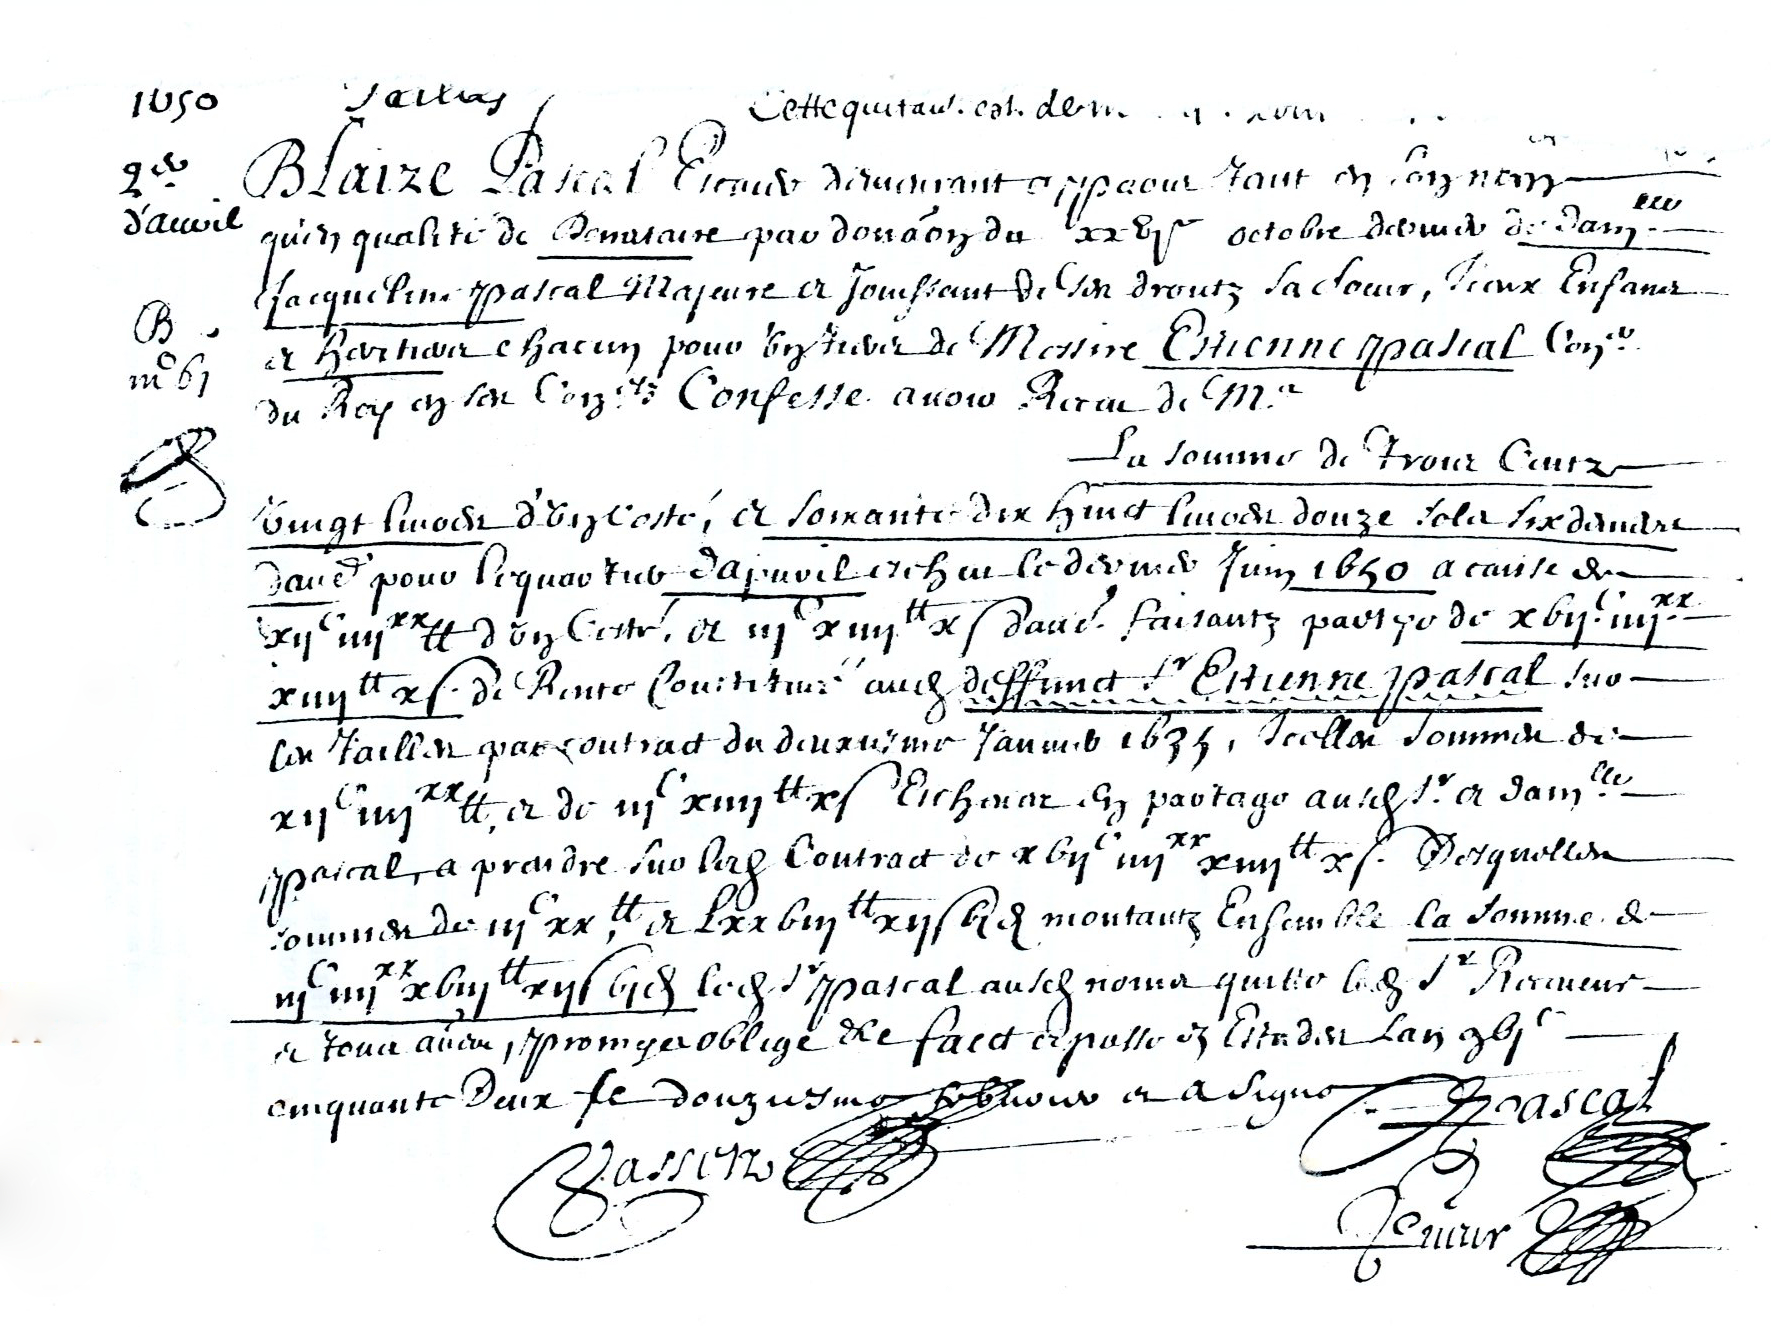 1650 Tailles Cette quitance est de
2er Blaize Pascal Escuier demeurant a ppaour tant en son nom
d'avvil qu'en qualité de Donataire par donaon du xxvje octobre dernier de damlle
Jacqueline Pascal Majeure et Jouissant de ses droictz sa soeur, Iceux Enfans
B et heritiers chacun pour un tiers de Messire Estienne Pascal Coner
mc 61 du Roy en ses Conseilz Confesse avoir Receu de Mre
La somme de Trois Centz
vingt livres d'un costé, et soixante dix huict livres douze solz six deniers
d'aued pour le quartier d'apvril escheu le dernier Juin 1650 a cause de
xijC iiijxx tt d'un Costé, et iijC xiiij tt x s d'aued. faisantz partye de xvijC iiijxx
xiiij tt x s. de Rente Constituée aud deffunct Sr Estienne Pascal sur
les Tailles par contract du deuxiesme Janvier 1635, Icelles sommes de
xijC iiijxx tt, et de iijC xiiij tt x s Escheues en partage ausd Sr. et damlle
Pascal, a prendre sur led Contract de xvijC iiijxx xiiij tt x s. Desquelles
sommes de iijC xx tt, et Lxxviij tt xij s vj d montantz Ensemble la somme de
iijC iiijxx xviij tt xij s vj d led Sr Pascal ausd noms quitte led Sr Receveur
et tous autres, promis et obligé &c faict et passé es Estudes Lan xvjC
cinquante Deux le douziesme febvrier et a signé Pascal